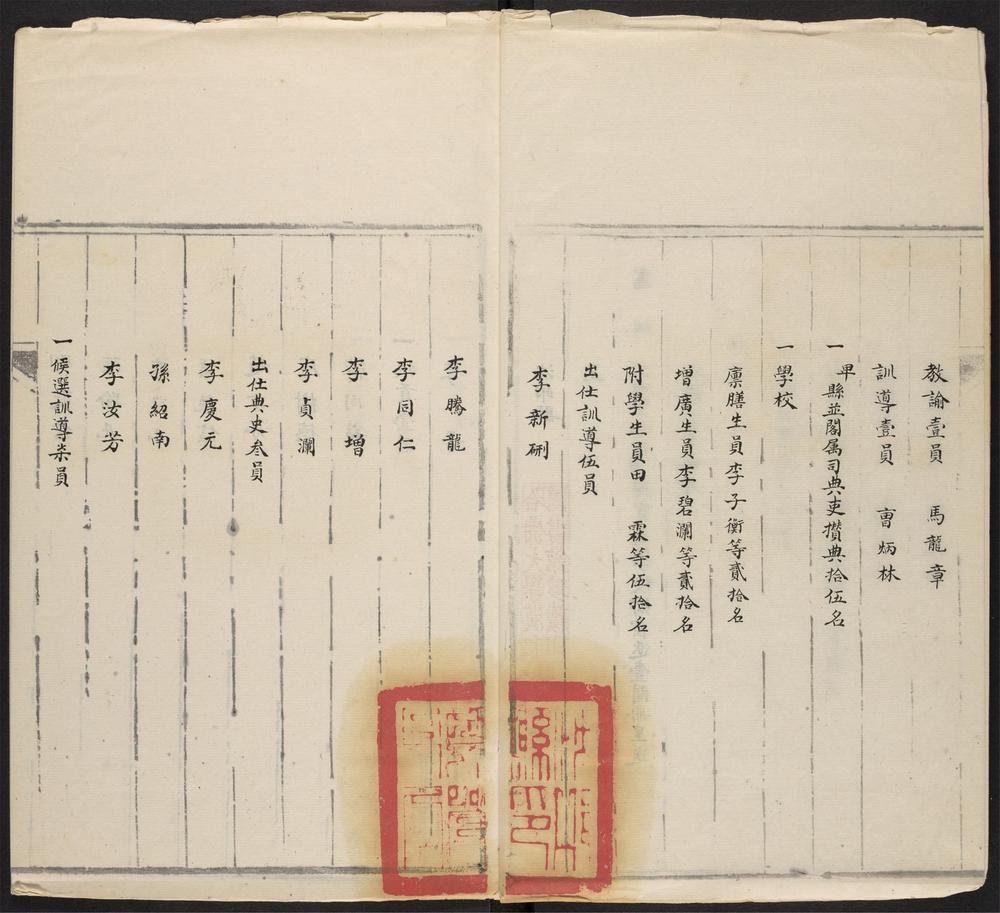 教諭壹員 馬龍章
訓導壹員 曺炳林
一 畢縣並閣属司典吏攢典拾伍名
一學校
廪膳生員李子衡等貳拾名
增廣生員李碧瀾等貳拾名
附學生員田 霖等伍拾名
出仕訓導伍員
李新硎
李騰龍
李同仁
李 增
李貞瀾
出仕典史叁員
李慶元
孫紹南
李汝芳
一候選訓導柒員